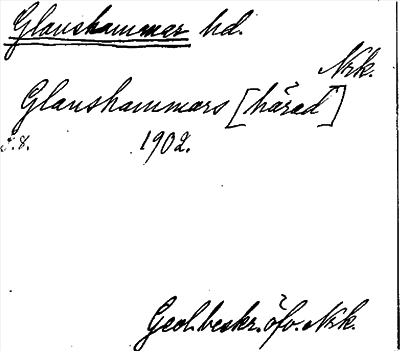 Glanshammar hd.
Nrk.
Glanshammars [härad]
s. 8. 1902.
Geol. beskr. öfv. Nrk.